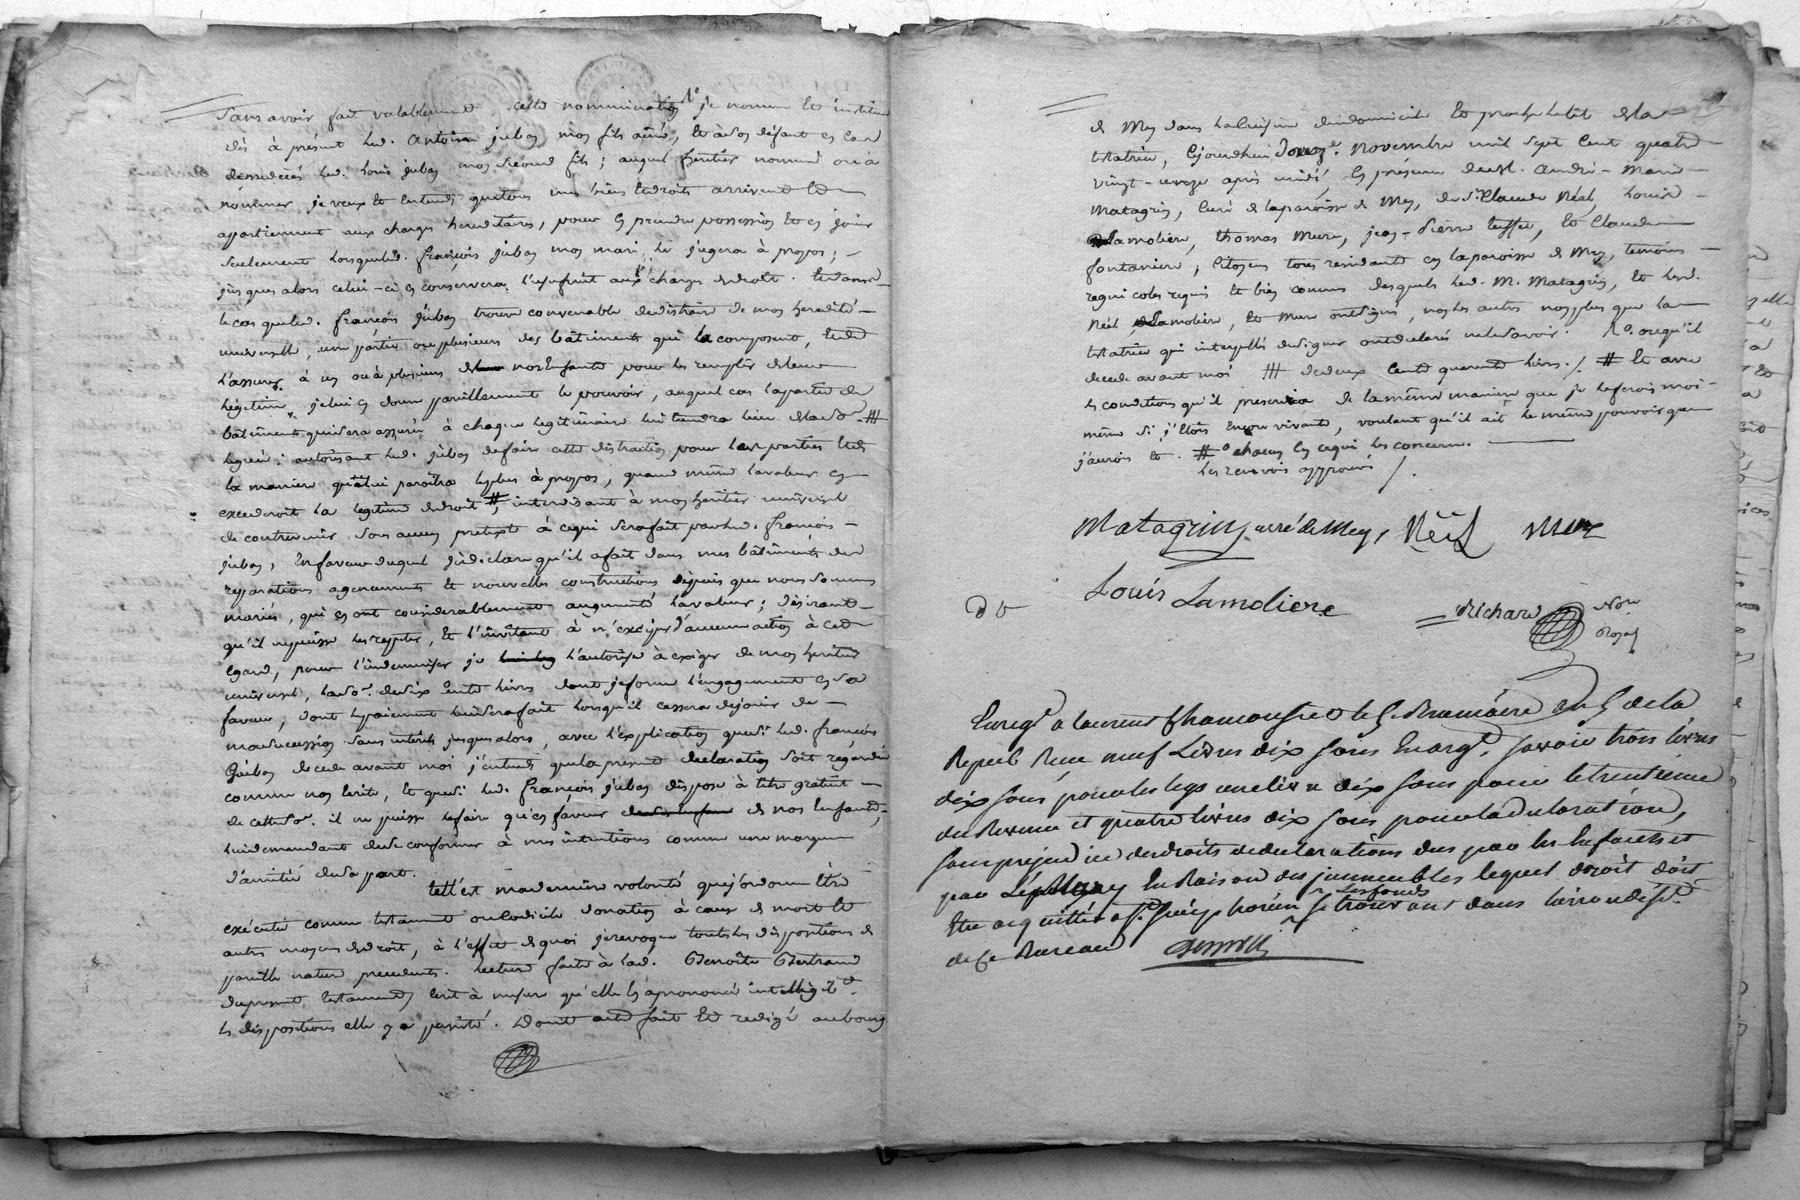 sans avoir fait valablement cette nomination 1° je nomme et institue
dès à présent led. antoine jubas mon fils ainé, et à son défaut en cas
de son décés led. Louis jubas mon second fils; auquel héritier nommé ou à
nommer je veux et entends que tous mes biens et droits arrivent et
appartiennent aux charges héréditaires, pour en prendre possession et en jouir
seulement lorsque led. françois jubas mon mari le jugera à propos;
jusques alors celui-ci en conservera l'usufruit aux charges de droit. Et dans
le cas que led. françois jubas trouve convenable de distraire de mon hérédité
universelle, une partie ou plusieurs des bâtiments qui la composent, et de
l'assurer à un ou à plusieurs de nos Enfants pour les remplir de leur
légitime, je lui en donne pareillement le pouvoir, auquel cas la partie de
bâtiments qui sera assurée à chaque légitimaire lui tiendra lieu de lad. so^e #
léguée: autorisant led. jubas de faire cette distraction pour les parties et de
la maniere qu'à lui paroitra le plus à propos, quand même la valeur en
excederoit la légitime de droit #, interdisant à mon héritier universel
de contrevenir sous aucun pretexte à ce qui sera fait par led. françois
jubas, En faveur duquel je declare qu'il a fait dans mes bâtiments des
reparations agencements et nouvelles constructions depuis que nous sommes
mariés, qui en ont considerablement augmenté la valeur; désirant
qu'il ne puisse les repeter, et l'invitant à n'exiger d'aucune action à cet
égard, pour l'indemniser je l'autorise à exiger de mon héritier
universel, la so^e. de six cents livres dont je forme l'engagement en sa
faveur, dont le paiement lui sera fait lorsqu'il cessera de jouir de
ma succession sans intérêts jusques alors, avec l'explication que si led. françois
jubas decede avant moi j'entends que la présente declaration soit regardée
comme non écrite, et que si led. françois jubas dispose à titre gratuit
de cette so^e. il ne puisse le faire qu'en faveur de nos Enfants,
lui demandant de se conformer à mes intentions comme une marque
d'amitié de sa part.
telle est ma derniere volonté que j'ordonne être
exécuté comme testament ou Codicile donation à cause de mort et
autres moyens de droit, à l'effet de quoi je revoque toutes les dispositions de
pareille nature precedentes. Lecture faite à lad. Benoîte Bertrand
du present testament, écrit à mesure qu'elle en a prononcé intelligibl^t.
les dispositions elle y a persisté. Dont acte fait et redigé au bourg
de Mey dans la Cuisine du domicile et proche le lit de la
testatrice, Cejourdhui douze. Novembre mil sept Cent quatre
vingt-onze après midi, En présence de s^r. André-Marie
Matagrin, Curé de la paroisse de Mey, de s^r Claude Néel, Louis
Lamoliere, thomas Mure, jean-Pierre, et Claude
fontaniere, Citoyens tous residants en la paroisse de Mey, temoins
requis et bien connus desquels led. M. Matagrin, et led.
Néel Lamoliere, et Mure ont signé, non les autres non plus que la
testatrice qui interpellés de signer ont declaré ne le savoir. 1°. ou qu'il
decede avant moi ### de deux Cents quarante livres ./ # et avec
les conditions qu'il prescrira de la même maniere que je le ferois moi-
même si j'étois Encore vivante, voulant qu'il ait le même pouvoir que
j'aurois et. #° chacun en ce qui les concerne.
Les renvois approuvés /.
Matagrin, curé de Mey, Néel Mure
Louis Lamoliere
Richard Nor
Royal
Enreg^é à Laurent Chamousset le 5. Brumaire an 5 de la
Repub. Recu neuf Livres dix sous En arg^t. savoir trois livres
dix sous pour les legs une livre dix sous pour le trentieme
du Revenu et quatre livres dix sous pour la declaration,
sans prejudice des droits de declarations dus par les Enfants et
par En Raison des immeubles lequel droit doit
Etre acquitté a s^t. Simphorien les fonds se trouvant dans l'arrondiss^t.
de Ce Bureau